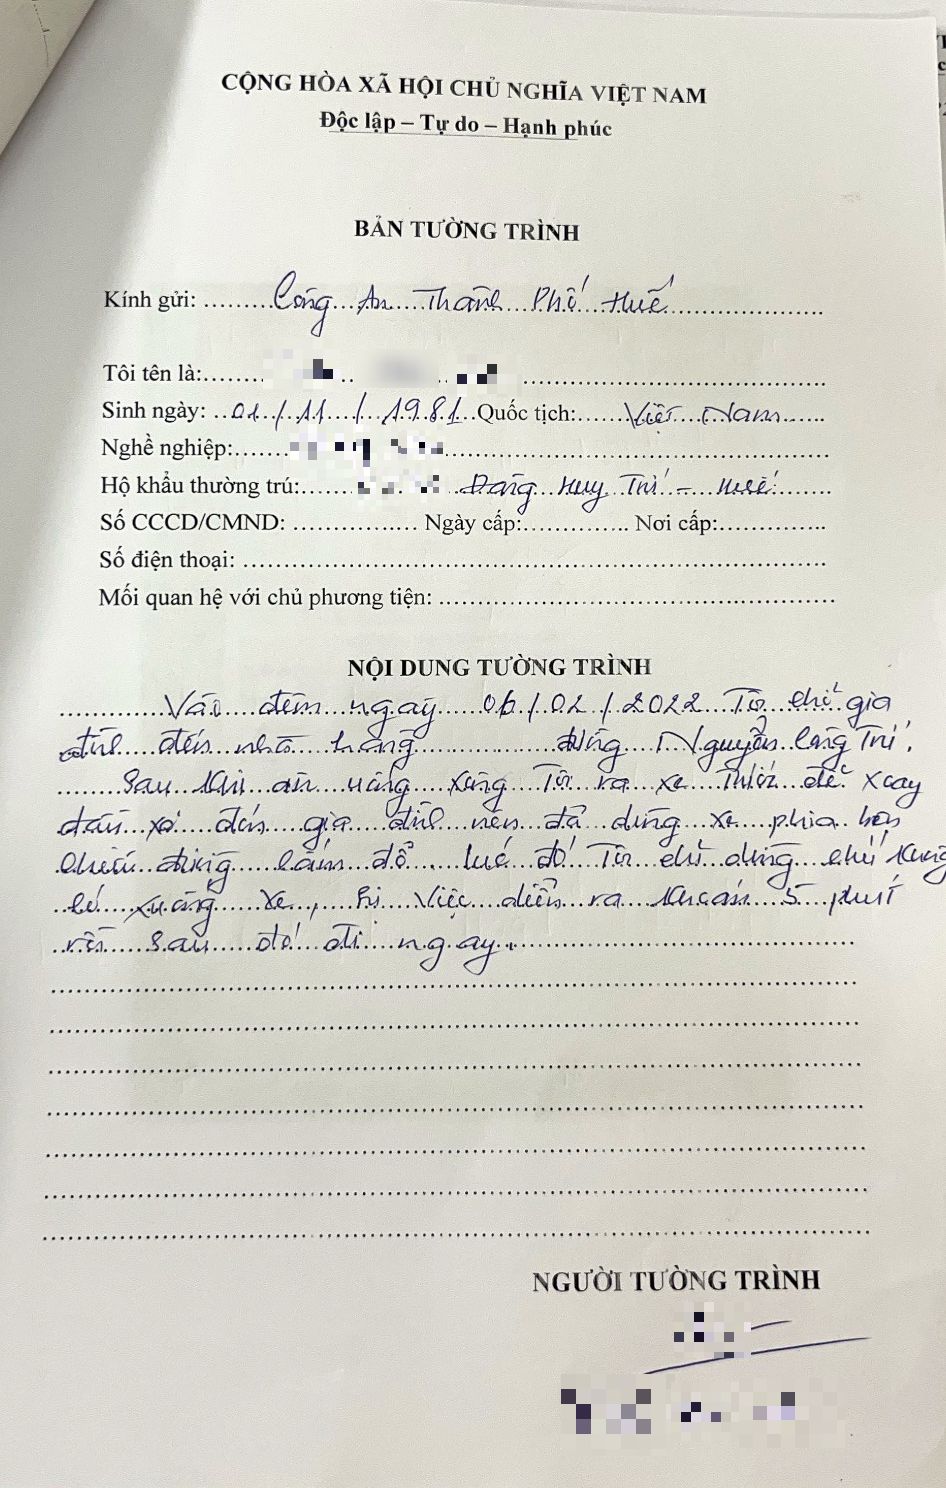 CỘNG HÒA XÃ HỘI CHỦ NGHĨA VIỆT NAM
Độc lập – Tự do – Hạnh phúc
BẢN TƯỜNG TRÌNH
Kính gửi: Công An Thành Phố Huế
Tôi tên là:
Sinh ngày: 01/11/1981 Quốc tịch: Việt Nam
Nghề nghiệp:
Hộ khẩu thường trú: Đặng Huy Trứ - Huế
Số CCCD/CMND: Ngày cấp: Nơi cấp:
Số điện thoại:
Mối quan hệ với chủ phương tiện:
NỘI DUNG TƯỜNG TRÌNH
Vào đêm ngày 06/02/2022 Tôi chở gia
đình đến nhà hàng đường Nguyễn Công Trứ.
Sau khi ăn uống xong Tôi ra xe trước để xoay
đầu xe đón gia đình nên đã dừng xe phía bên
chiều đường cấm đỗ lúc đó Tôi chỉ dừng chứ không
có xuống xe, sự việc diễn ra khoản 5 phút
rồi sau đó đi ngay.
NGƯỜI TƯỜNG TRÌNH